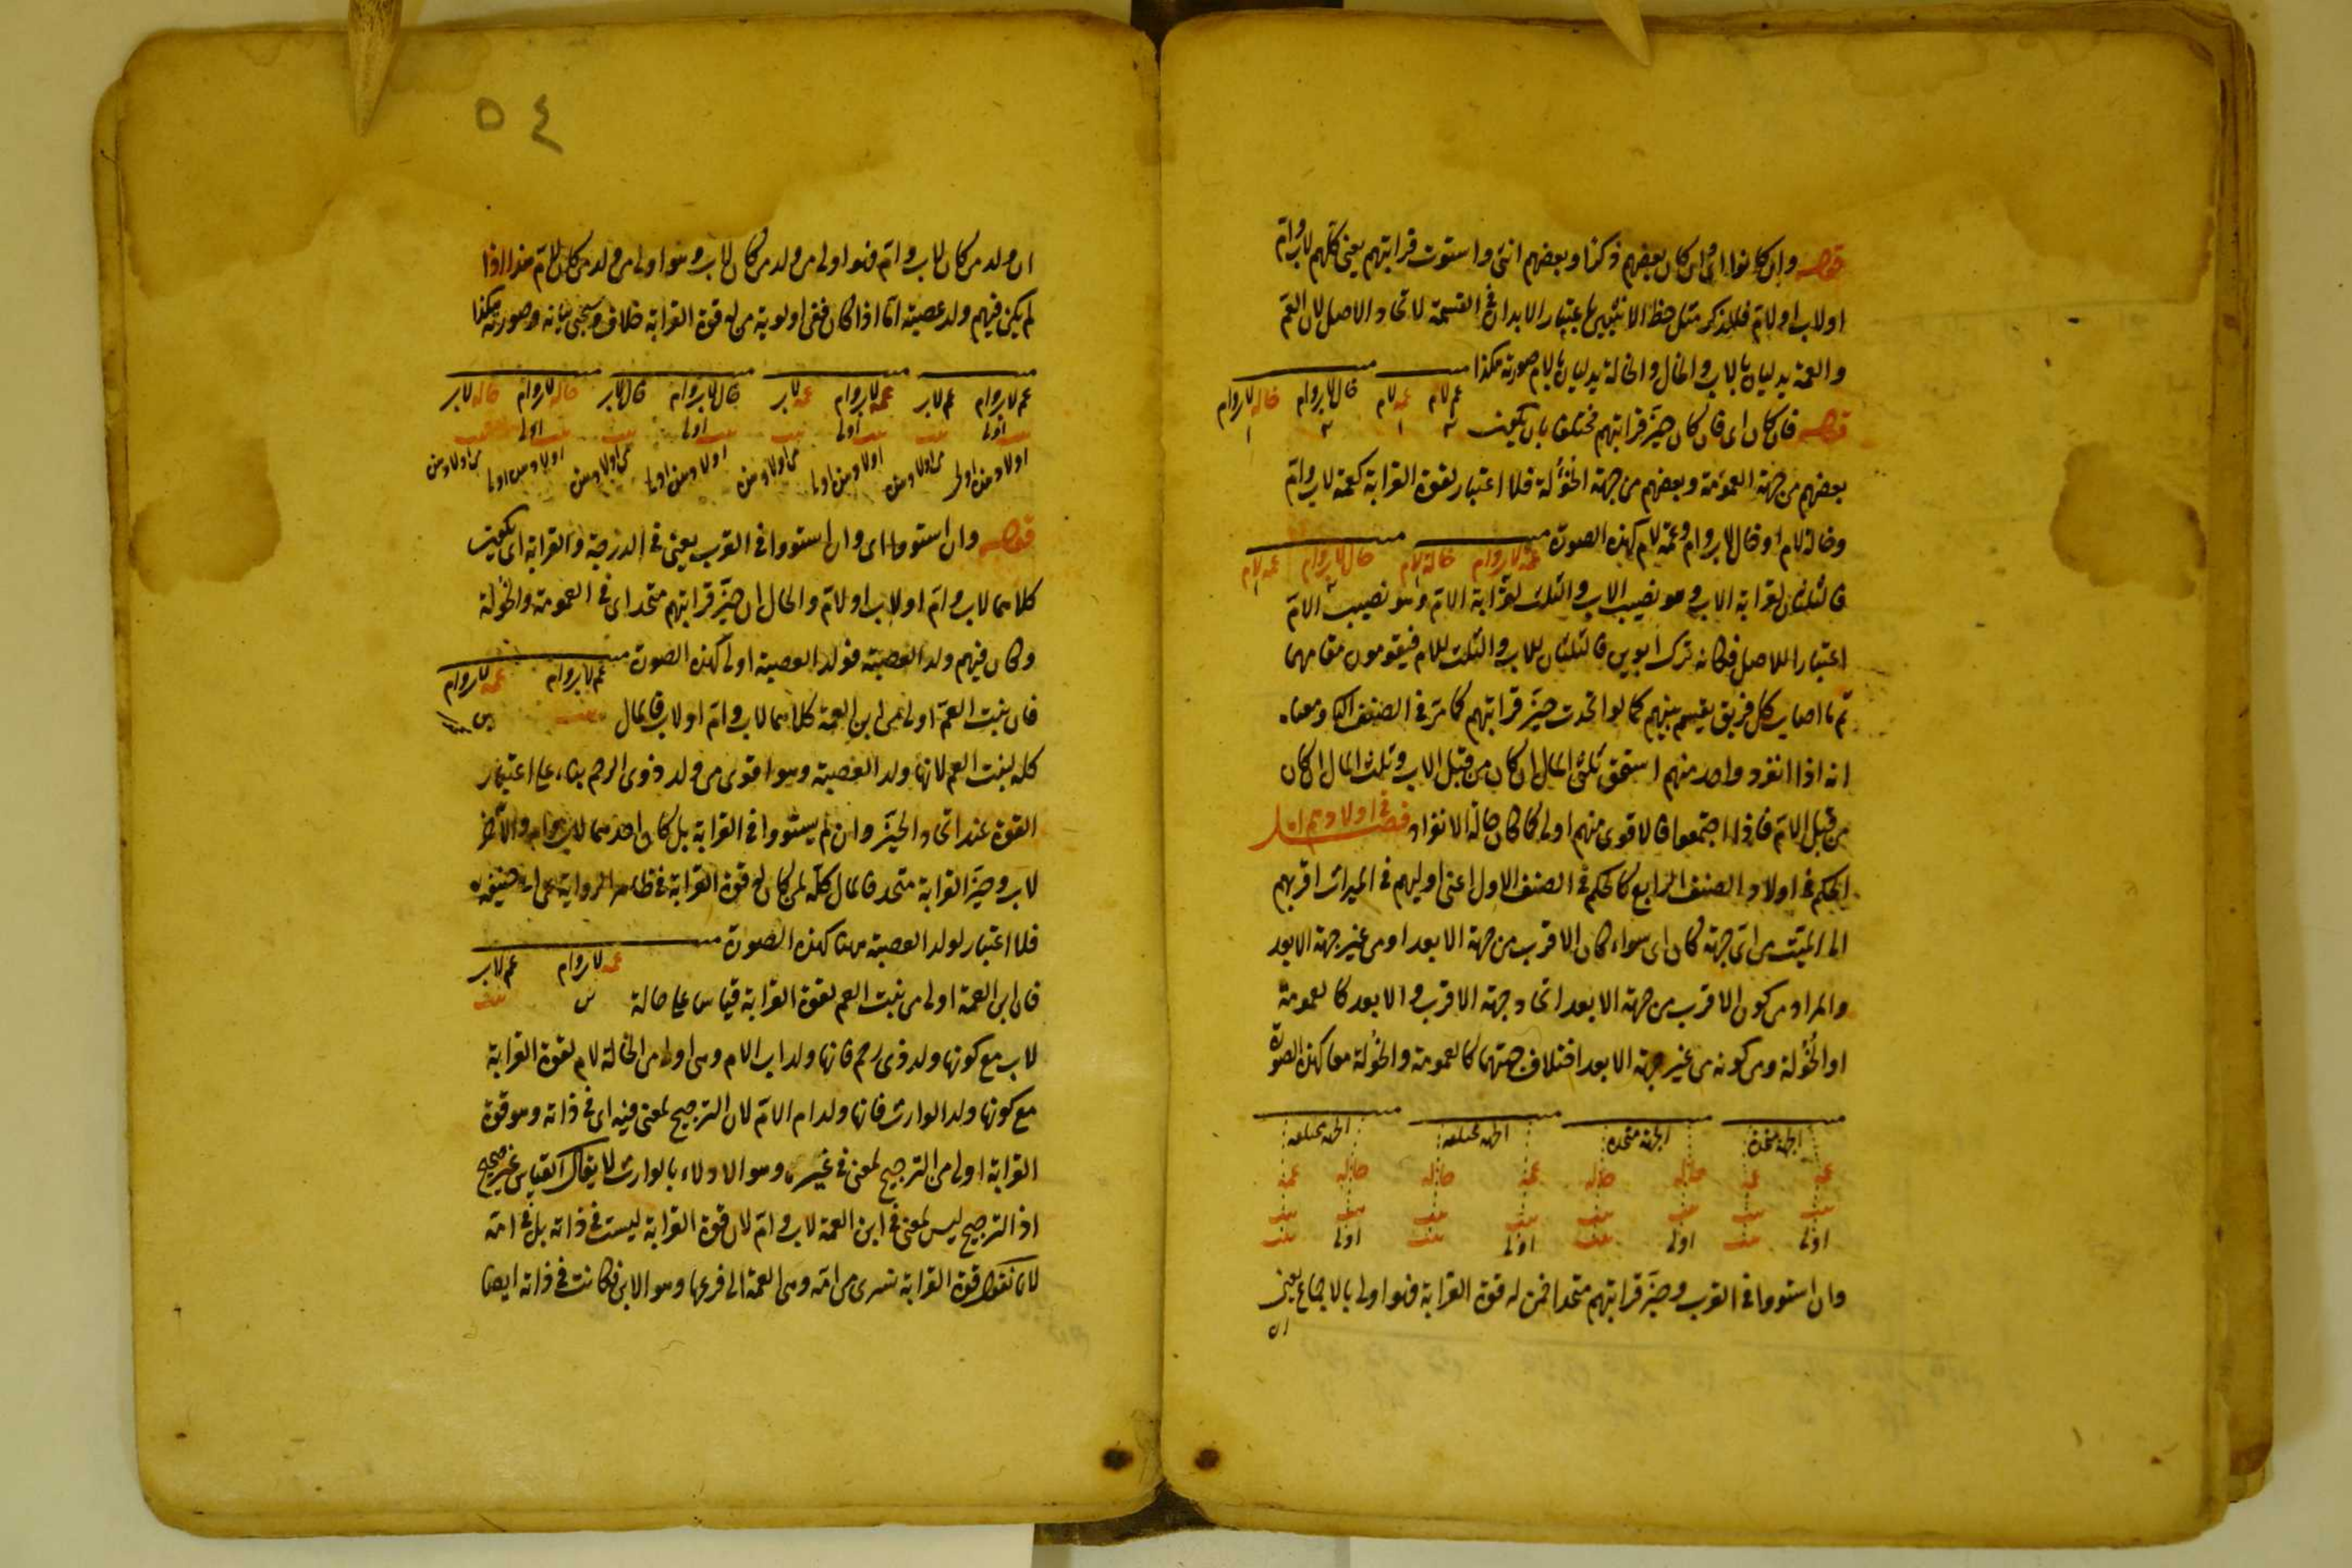 قوله وان كانوا اى ان كان بعضهم ذكرا وبعضهم انثى واستوت قرابتهم يعنى كلهم لاب وام
او لاب او لام فللذكر مثل حظ الانثيين باعتبار الابدان فى القسمة لاتحاد الاصل لان العم
والعمة يدليان بالاب والخال والخالة يدليان بالام صورته هكذا
عم لام عمه لام خال لاب وام خاله لاب وام
٢ ١ ٢ ١
قوله فان كان اى فان كان حيز قرابتهم مختلفا بان يكون
بعضهم من جهة العمومة وبعضهم من جهة الخؤلة فلا اعتبار لقوة القرابة كعمة لاب وام
وخالة لام او خال لاب وام وعمة لام بهذه الصورة
عمة لاب وام خالة لام خال لاب وام عمه لام
فالثلثان لقرابة الاب وهو نصيب الاب والثلث لقرابة الام وهو نصيب الام
اعتبارا للاصل فكانه ترك ابوين فالثلثان للاب والثلث للام فيقومون مقامهما
ثم ما اصاب كل فريق يقسم بينهم كما لو اتحدت حيز قرابتهم كما مر فى الصنف ومعناه
انه اذا انفرد واحد منهم استحق ثلثى المال ان كان من قبل الاب وثلث المال ان كان
من قبل الام فاذا اجتمعوا فالاقوى منهم اولى كما كان حالة الانفراد فصل فى اولادهم
الحكم فى اولاد الصنف الرابع كالحكم فى الصنف الاول اعنى اوليهم فى الميراث اقربهم
الى الميت من اى جهة كان اى سواء كان الاقرب من جهة الابعد او من غير جهة الابعد
والمراد من كون الاقرب من جهة الابعد اتحاد جهة الاقرب والابعد كالعمومة
او الخؤلة ومن كونه من غير جهة الابعد اختلاف جهتهما كالعمومة والخؤلة معا كهذه الصورة
الجهة متحدة الجهة متحده الجهه مختلفه الجهه مختلفه
عمه عمه خاله خاله عمه خاله خاله عمه
بنت بنت بنت بنت بنت بنت بنت بنت
اولى بنت اولى بنت اولى بنت اولى بنت
وان استووا فى القرب وحيز قرابتهم متحدا فمن له قوة القرابة فهو اولى بالاجماع يعنى
ان
٥٤
ان ولد من كان لاب وام فهو اولى من ولد من كان لاب وهو اولى من ولد من كان لام هذا اذا
لم يكن فيهم ولد عصبة اما اذا كان ففى اولوية من له قوة القرابة خلاف وسيجئ بيانه وصورته هكذا
عم لاب وام عم لاب عمه لاب وام عمه لاب خال لاب وام خال لاب خاله لاب وام خاله لاب
بنت بنت بنت بنت بنت بنت بنت بنت
اولى اولى اولى اولى
اولاد هن اولى من اولاد هن اولاد هن اولى من اولاد هن اولاد هن اولى من اولاد هن اولاد هن اولى من اولاد هن
قوله وان استووا اى وان استووا فى القرب يعنى فى الدرجة والقرابة اى يكون
كلاهما لاب وام او لاب او لام والحال ان حيز قرابتهم متحد اى فى العمومة والخؤلة
وكان فيهم ولد العصبة فولد العصبة اولى كهذه الصورة
عم لاب وام عمه لاب وام
بنت ابن
فان بنت العم اولى من ابن العمة كلاهما لاب وام او لاب فالمال
كله لبنت العم لانها ولد العصبة وهو اقوى من ولد ذوى الرحم بناء على اعتبار
القوة عند اتحاد الحيز وان لم يستووا فى القرابة بل كان احدهما لاب وام والاخر
لاب وحيز القرابة متحد فالمال كله لمن كان له قوة القرابة فى ظاهر الرواية عن ابى حنيفه
فلا اعتبار لولد العصبة هنا كهذه الصورة
عمه لاب وام عم لاب
بنت
فان ابن العمة اولى من بنت العم لقوة القرابة قياس على خالة
لاب مع كونها ولد ذى رحم فانها ولد اب الام وهى اولى من الخالة لام لقوة القرابة
مع كونها ولد الوارث فانها ولد ام الام لان الترجيح لمعنى فيه اى فى ذاته وهو قوة
القرابة اولى من الترجيح لمعنى فى غيره وهو الادلاء بالوارث لا يقال القياس غير صحيح
اذ الترجيح ليس لمعنى فى ابن العمة لاب وام لان قوة القرابة ليست فى ذاته بل فى امه
لانا نقول قوة القرابة تسرى من امه وهى العمة الى فرعها وهو الابن فكانت فى ذاته ايضا